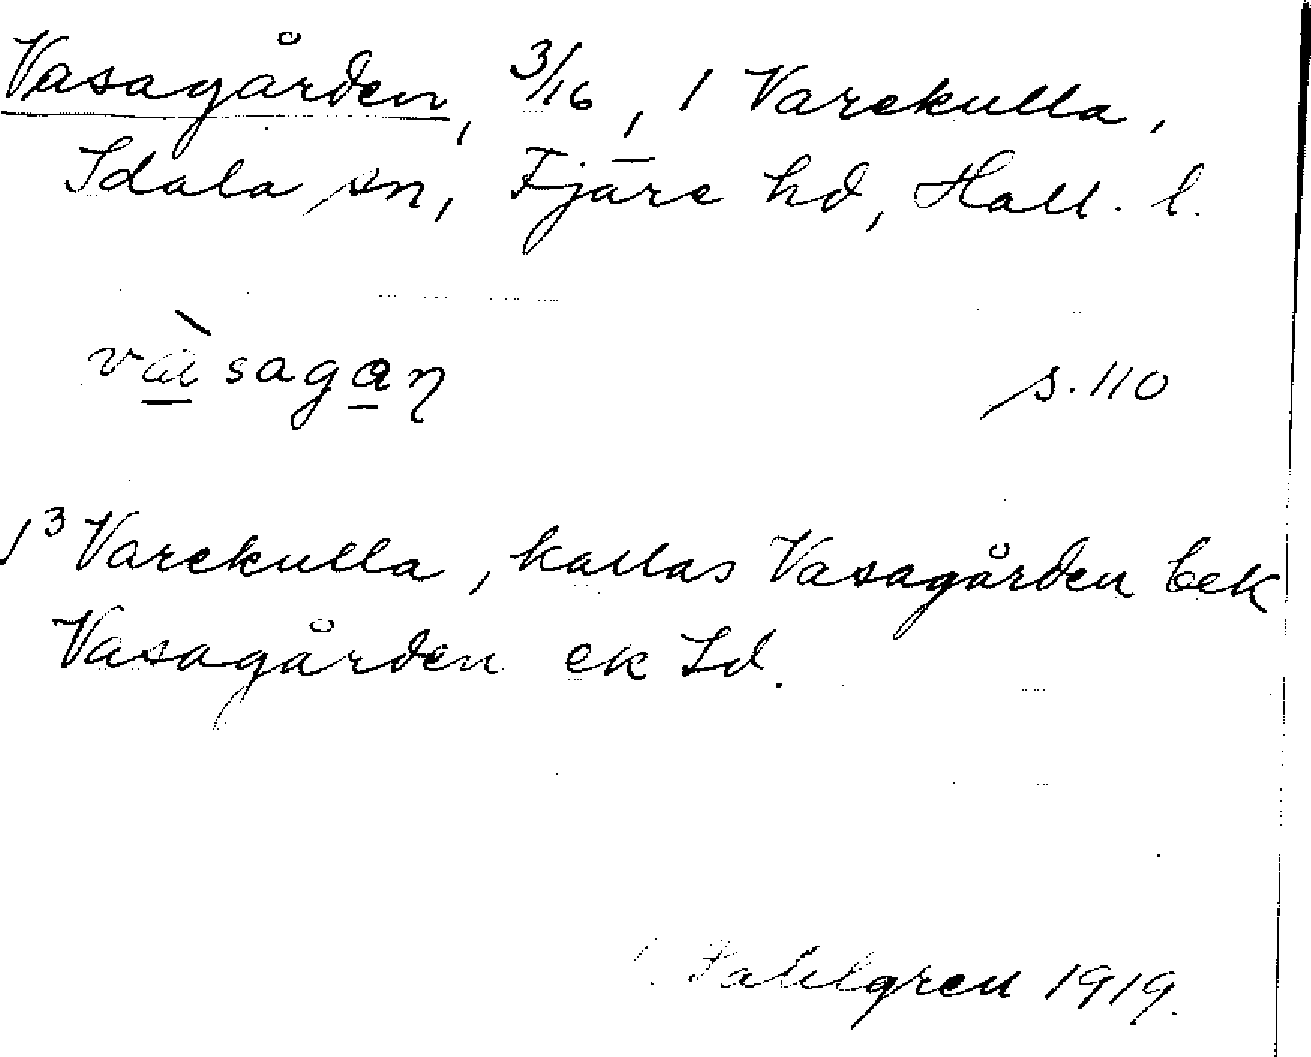 Vasagården, 3/16, 1 Varekulla,
Idala sn, Fjäre hd, Hall. l.
vàsagaɳ s. 110
1³ Varekulla, kallas Vasagården bek
Vasagården ek Id.
Sahlgren 1919.